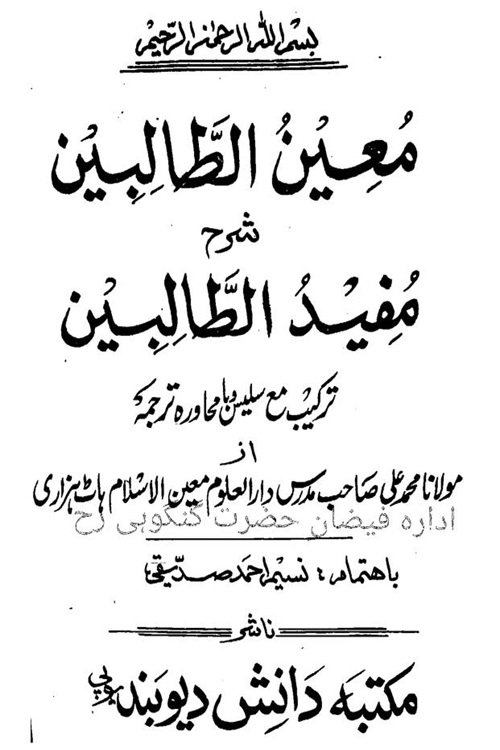 بسم اللہ الرحمٰن الرحیم
مُعِیْنُ الطَّالِبِیْن
شرح
مُفِیْدُ الطَّالِبِیْن
ترکیب مع سلیس و با محاورہ ترجمہ
از
مولانا محمد علی صاحب مدرس دارالعلوم معین الاسلام ہاٹ ہزاری
ادارہ فیضان حضرت گنگوہی رح
باھتمام: نسیم احمد صدیقی
ناشر
مکتبہ دَانِش دیوبَند یوپی